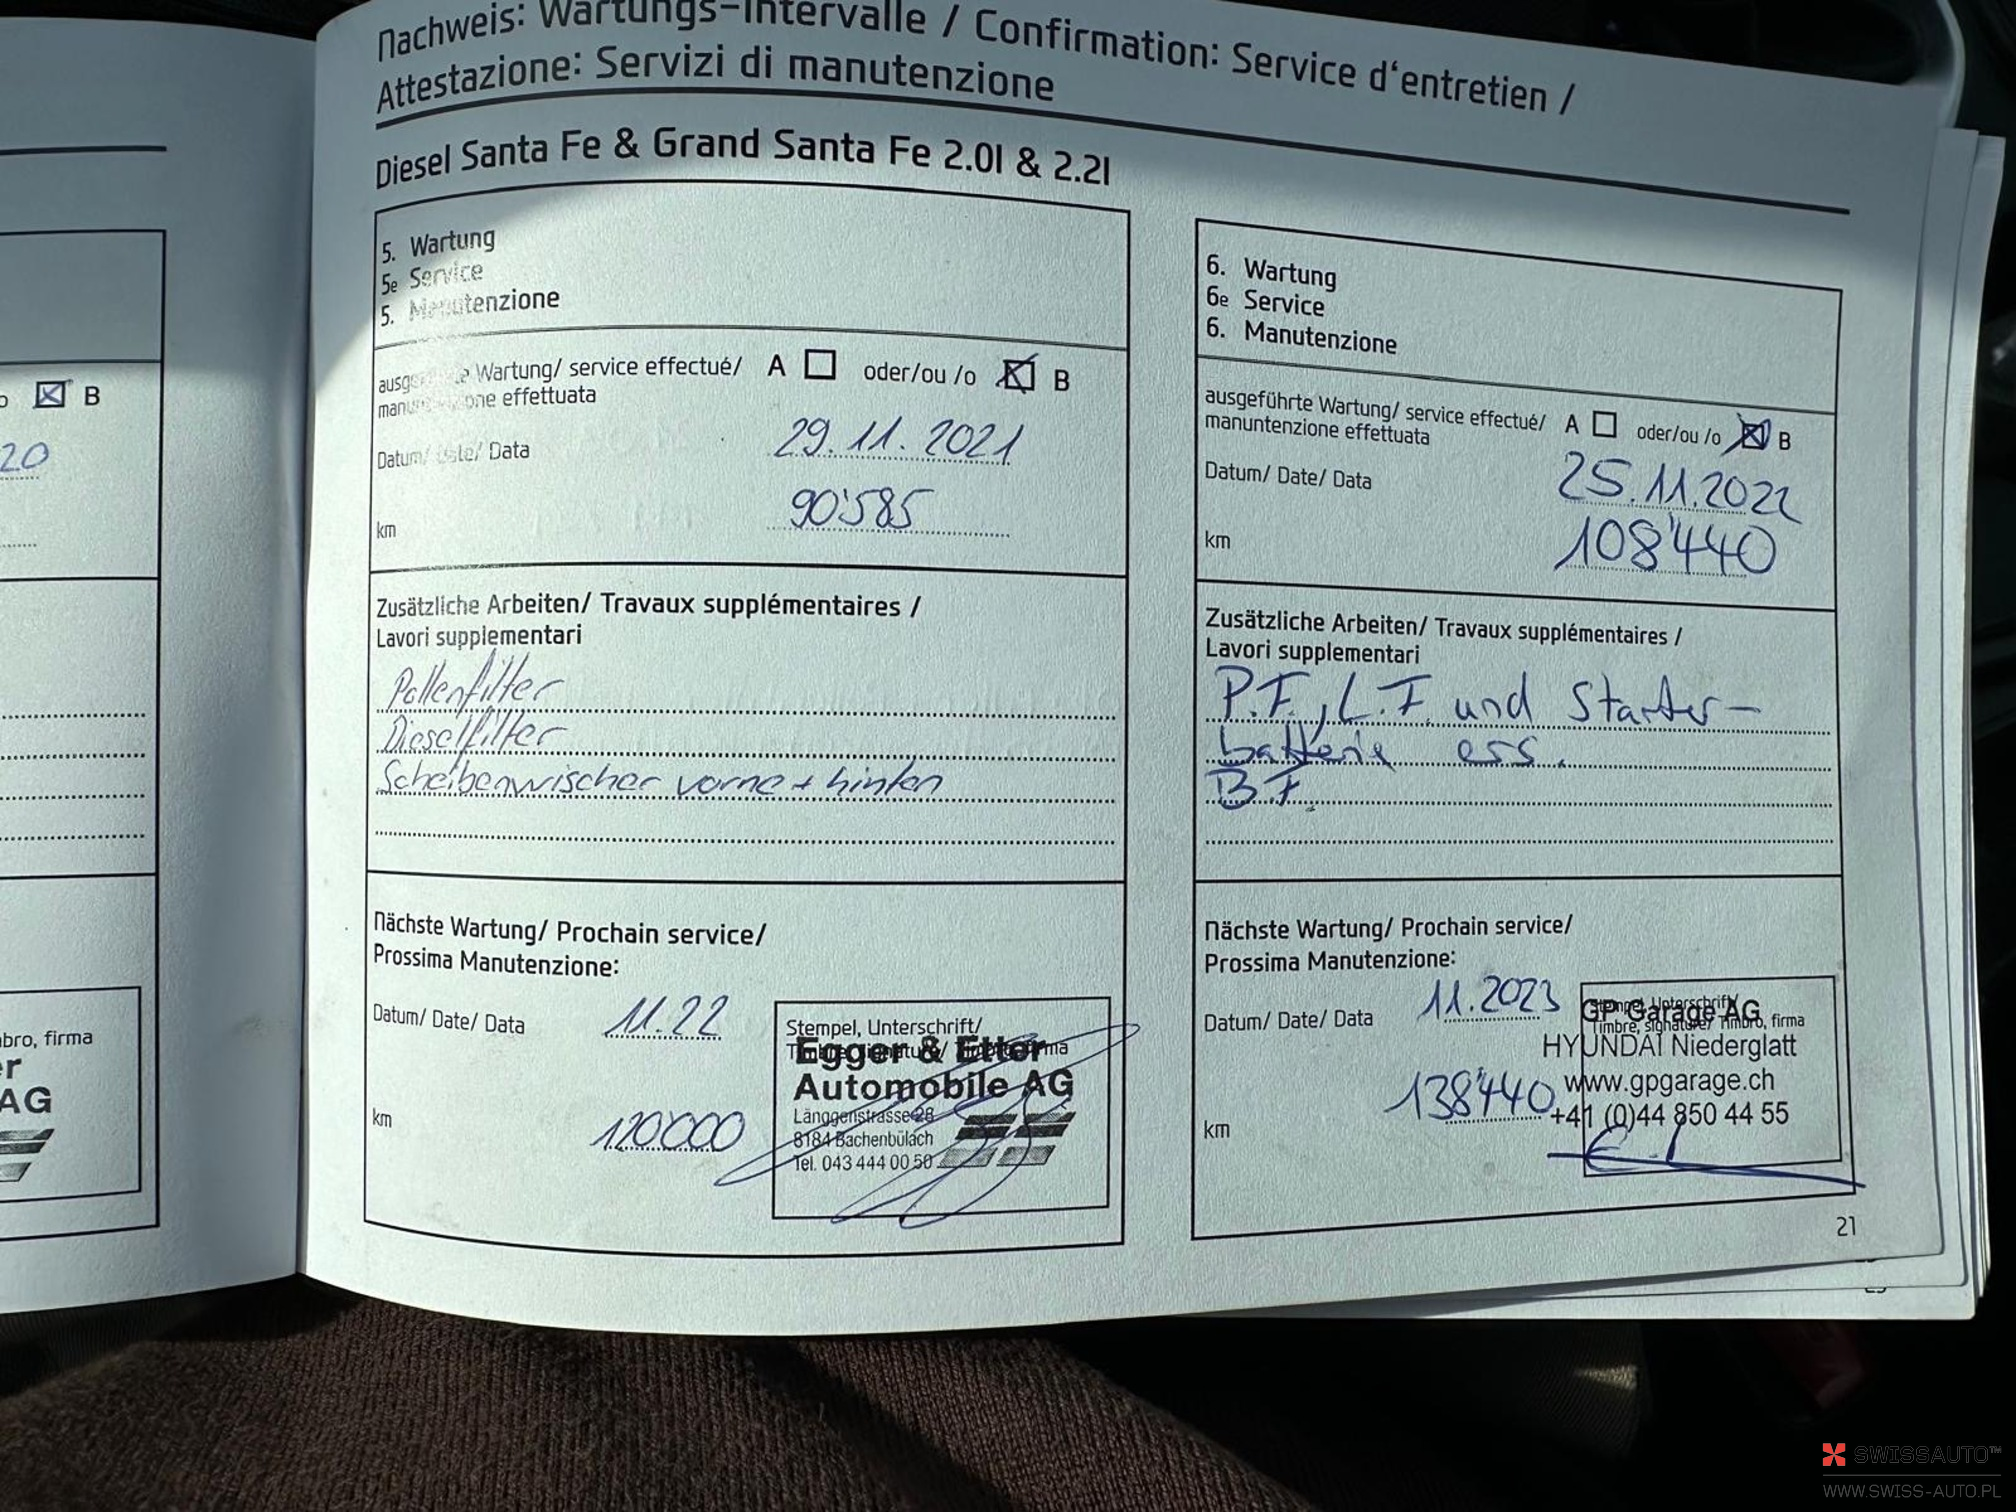 Nachweis: Wartungs-Intervalle / Confirmation: Service d'entretien /
Attestazione: Servizi di manutenzione
Diesel Santa Fe & Grand Santa Fe 2.0l & 2.2l
B
20
bro, firma
r
AG
5. Wartung
5e Service
5. Manutenzione
ausgeführte Wartung/ service effectué/ A oder/ou /o B
manuntenzione effettuata
Datum/ Date/ Data 29.11.2021
km 90'585
Zusätzliche Arbeiten/ Travaux supplémentaires /
Lavori supplementari
Pollenfilter
Dieselfilter
Scheibenwischer vorne + hinten
Nächste Wartung/ Prochain service/
Prossima Manutenzione:
Datum/ Date/ Data 11.22
km 120'000
Stempel, Unterschrift/
Timbre, signature/ Timbro, firma
Egger & Etter
Automobile AG
Länggenstrasse 28
8184 Bachenbülach
Tel. 043 444 00 50
6. Wartung
6e Service
6. Manutenzione
ausgeführte Wartung/ service effectué/ A oder/ou /o B
manuntenzione effettuata
Datum/ Date/ Data 25.11.2022
km 108'440
Zusätzliche Arbeiten/ Travaux supplémentaires /
Lavori supplementari
P.F., L.F. und Starter-
batterie ers.
B.F.
Nächste Wartung/ Prochain service/
Prossima Manutenzione:
Datum/ Date/ Data 11.2023
km 138'440
Stempel, Unterschrift/
Timbre, signature/ Timbro, firma
GP Garage AG
HYUNDAI Niederglatt
www.gpgarage.ch
+41 (0)44 850 44 55
21
SWISSAUTO™
WWW.SWISS-AUTO.PL